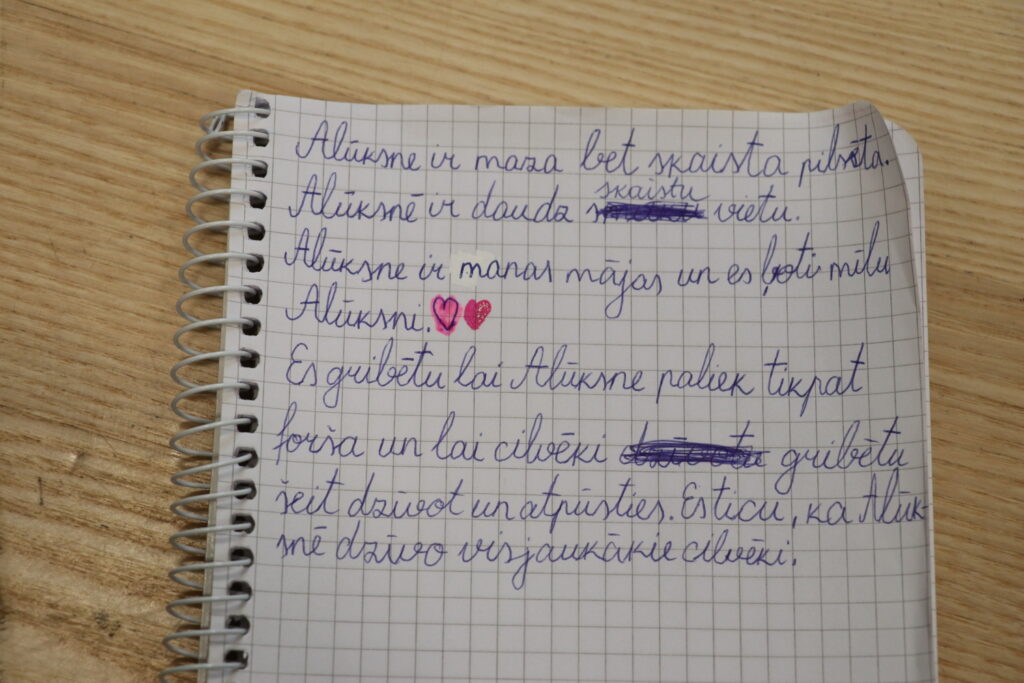 Alūksne ir maza bet skaista pilsēta.
Alūksnē ir daudz skaistu vietu.
Alūksne ir manas mājas un es ļoti mīlu
Alūksni.
Es gribētu lai Alūksne paliek tikpat
forša un lai cilvēki gribētu
šeit dzīvot un atpūsties. Es ticu, ka Alūk-
snē dzīvo visjaukākie cilvēki.